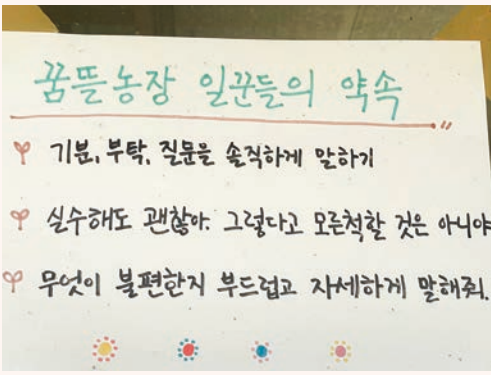 꿈뜰농장 일꾼들의 약속
기분, 부탁, 질문을 솔직하게 말하기
실수해도 괜찮아. 그렇다고 모른척할 것은 아니야
무엇이 불편한지 부드럽고 자세하게 말해줘.